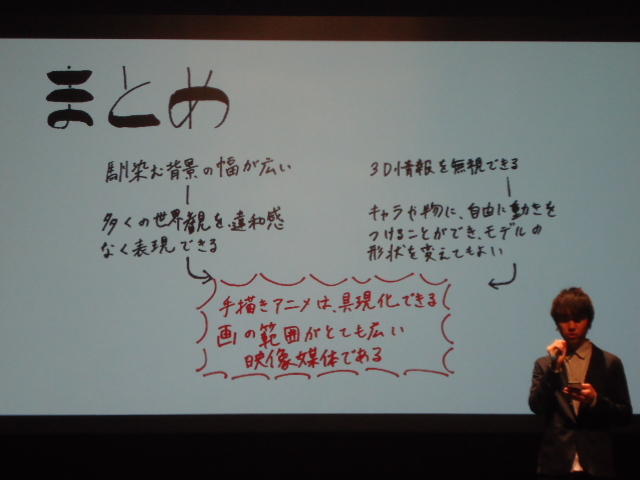 まとめ
馴染む背景の幅が広い
多くの世界観を、違和感
なく表現できる
3D情報を無視できる
キャラや物に、自由に動きを
つけることができ、モデルの
形状を変えてもよい
手描きアニメは、具現化できる
画の範囲がとても広い
映像媒体である